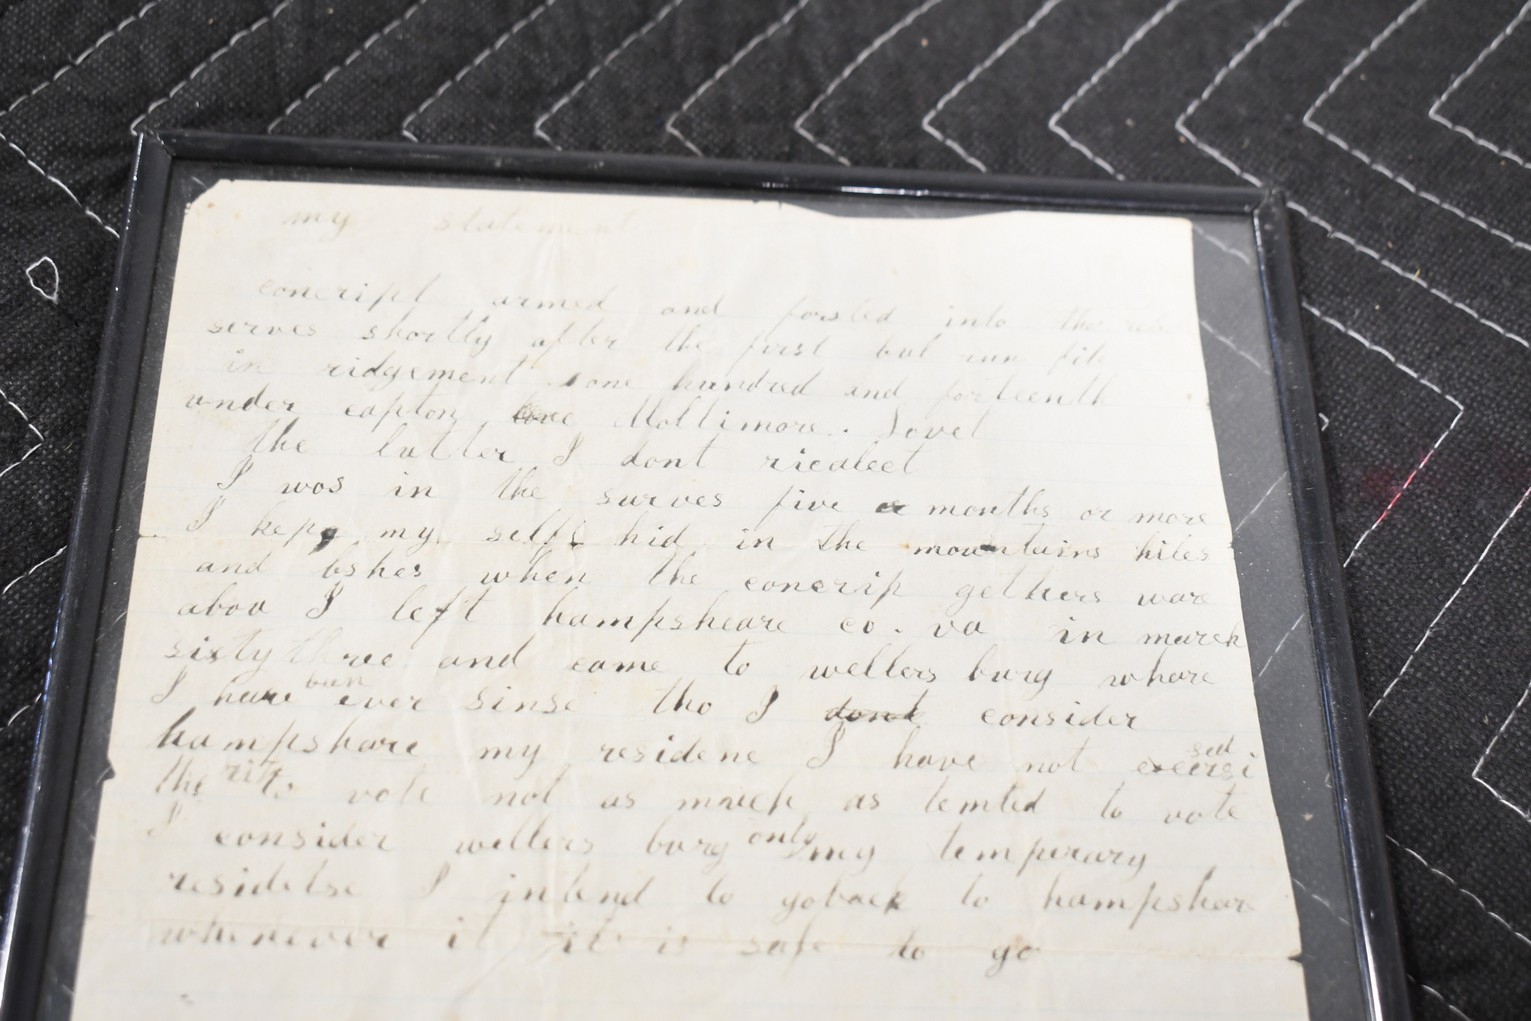 my statement
concript armed and forsted into the
serves shortly after the first bul run fite
in ridgement one hundred and forteenth
under capton love Moltimore. Lovel
the latter I dont ricalect
I wos in the surves five or months or more
I kept my selfs hid in the mountains hiles
and bshes when the concrip gethers ware
abou I left hampsheare co. va in march
sixty three and came to wellers burg whare
I have bun ever sinse tho I dont consider
hampshare my residene I have not excersised
the rite to vote not as much as temted to vote
I consider wellers burg only my temperary
residetse I intend to goback to hampshare
whenever i it is safe to go